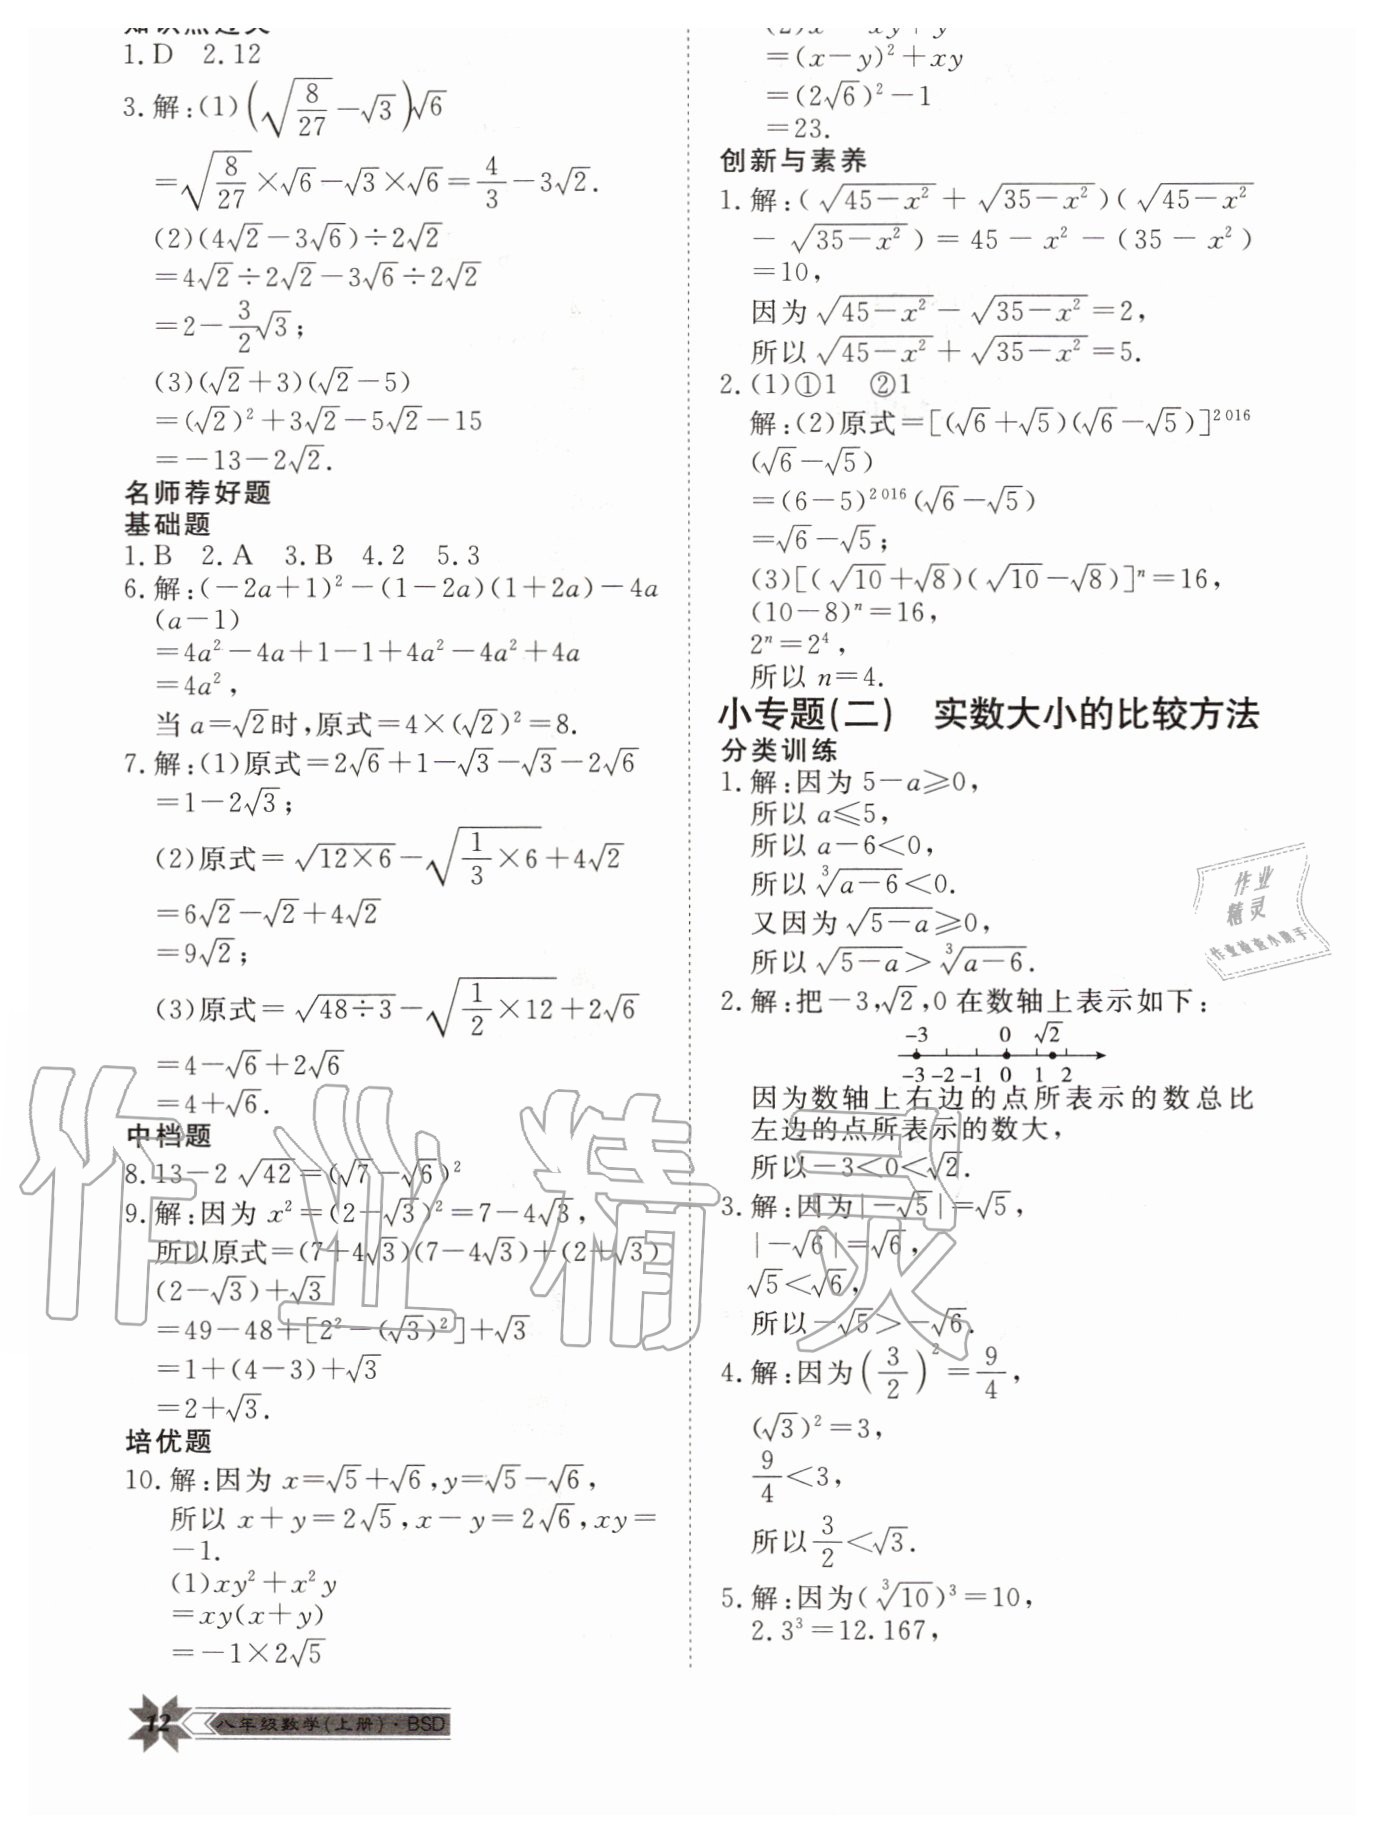 1.D　2.12
3.解:(1)(√(8/27)－√3)√6
＝√(8/27)×√6－√3×√6＝4/3－3√2.
(2)(4√2－3√6)÷2√2
＝4√2÷2√2－3√6÷2√2
＝2－3/2√3;
(3)(√2＋3)(√2－5)
＝(√2)²＋3√2－5√2－15
＝－13－2√2.
名师荐好题
基础题
1.B　2.A　3.B　4.2　5.3
6.解:(－2a＋1)²－(1－2a)(1＋2a)－4a
(a－1)
＝4a²－4a＋1－1＋4a²－4a²＋4a
＝4a²,
当a＝√2时,原式＝4×(√2)²＝8.
7.解:(1)原式＝2√6＋1－√3－√3－2√6
＝1－2√3;
(2)原式＝√(12×6)－√(1/3×6)＋4√2
＝6√2－√2＋4√2
＝9√2;
(3)原式＝√(48÷3)－√(1/2×12)＋2√6
＝4－√6＋2√6
＝4＋√6.
中档题
8.13－2√42＝(√7－√6)²
9.解:因为x²＝(2－√3)²＝7－4√3,
所以原式＝(7＋4√3)(7－4√3)＋(2＋√3)
(2－√3)＋√3
＝49－48＋[2²－(√3)²]＋√3
＝1＋(4－3)＋√3
＝2＋√3.
培优题
10.解:因为x＝√5＋√6,y＝√5－√6,
所以x＋y＝2√5,x－y＝2√6,xy＝
－1.
(1)xy²＋x²y
＝xy(x＋y)
＝－1×2√5
＝(x－y)²＋xy
＝(2√6)²－1
＝23.
创新与素养
1.解:(√(45－x²)＋√(35－x²))(√(45－x²)
－√(35－x²))＝45－x²－(35－x²)
＝10,
因为√(45－x²)－√(35－x²)＝2,
所以√(45－x²)＋√(35－x²)＝5.
2.(1)①1　②1
解:(2)原式＝[(√6＋√5)(√6－√5)]²⁰¹⁶
(√6－√5)
＝(6－5)²⁰¹⁶(√6－√5)
＝√6－√5;
(3)[(√10＋√8)(√10－√8)]ⁿ＝16,
(10－8)ⁿ＝16,
2ⁿ＝2⁴,
所以n＝4.
小专题(二)　实数大小的比较方法
分类训练
1.解:因为5－a≥0,
所以a≤5,
所以a－6<0,
所以∛(a－6)<0.
又因为√(5－a)≥0,
所以√(5－a)>∛(a－6).
2.解:把－3,√2,0在数轴上表示如下:
－3　0　√2
－3 －2 －1 0 1 2
因为数轴上右边的点所表示的数总比
左边的点所表示的数大,
所以－3<0<√2.
3.解:因为|－√5|＝√5,
|－√6|＝√6,
√5<√6,
所以－√5>－√6.
4.解:因为(3/2)²＝9/4,
(√3)²＝3,
9/4<3,
所以3/2<√3.
5.解:因为(∛10)³＝10,
2.3³＝12.167,
12 八年级数学(上册)·BSD
作业精灵
作业
精灵
作业检查小助手